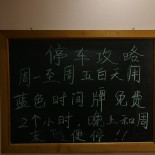 停车攻略
周一至周五白天用
蓝色时间牌 免费
2个小时，晚上和周
末随便停！！